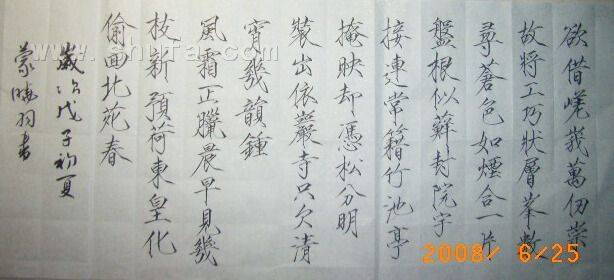 欲借嵯峩萬仞崇
故將工巧狀層峯數
尋蒼色如煙合一片
盤根似蘚封院宇
接連常籍竹池亭
掩映却憑松分明
裝出依巖寺只欠清
宵幾韻鍾
風霜正臘晨早見幾
枝新預荷東皇化
偷囬北苑春
歲次戊子初夏
蒙曉羽書
2008/ 6/25